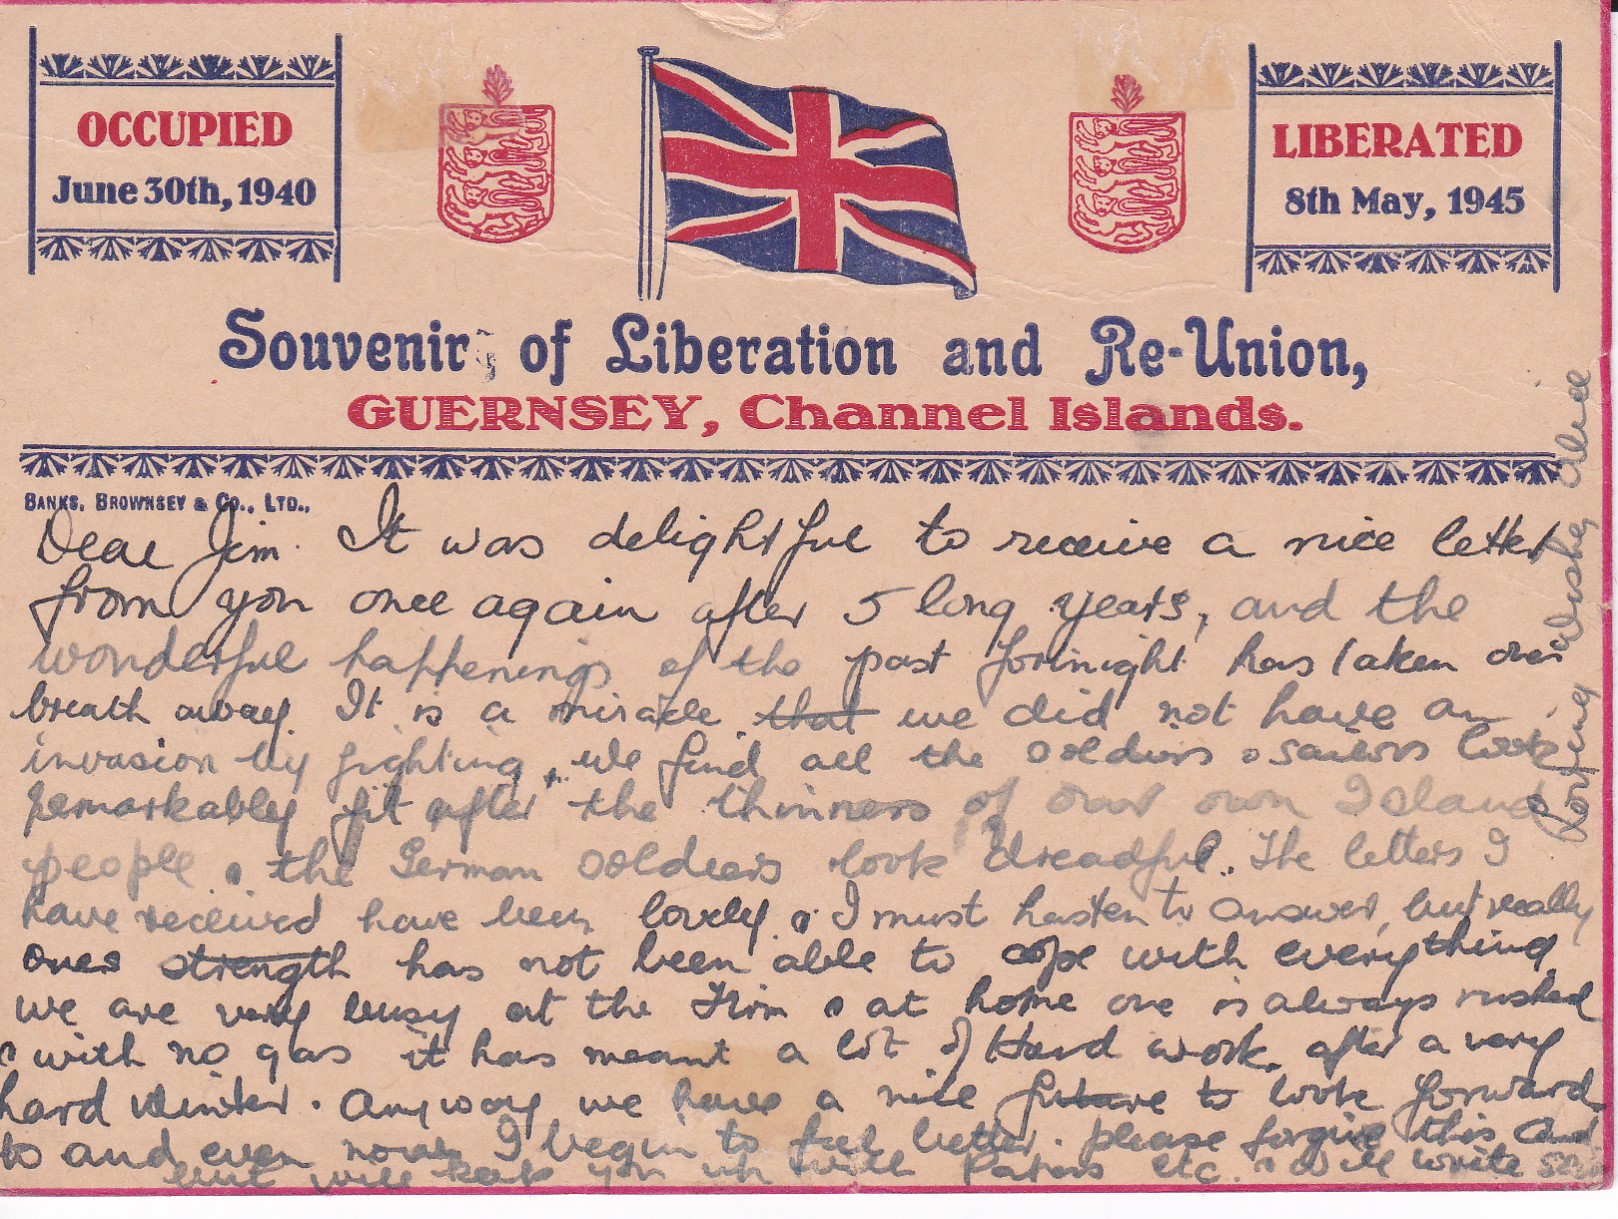 OCCUPIED
June 30th, 1940
LIBERATED
8th May, 1945
Souvenir of Liberation and Re-Union,
GUERNSEY, Channel Islands.
BANKS, BROWNSEY & CO., LTD.,
Dear Jim. It was delightful to receive a nice letter
from you once again after 5 long years, and the
wonderful happenings of the past fortnight has taken our
breath away. It is a miracle that we did not have an
invasion by fighting, we find all the soldiers & sailors look
remarkably fit after the thinness of our own Island
people & the German soldiers look dreadful. The letters I
have received have been lovely & I must hasten to answer, but really
ones strength has not been able to cope with everything
we are very busy at the Firm & at home one is always rushed
& with no gas it has meant a lot of Hard work, after a very
hard winter. Anyway we have a nice future to look forward
to and even now I begin to feel better. please forgive this card
but will keep you up with Papers etc. & will write soon
Loving wishes Alice